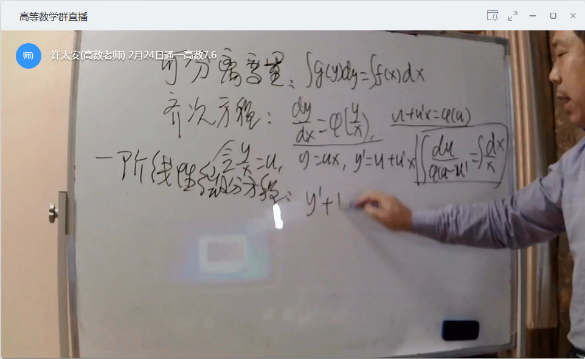 高等数学群直播
师) 许太安(高数老师) 2月24日通一高数7.6
可分离变量: ∫g(y)dy=∫f(x)dx
齐次方程: dy/dx=φ(y/x), u+u'x=φ(u)
令y/x=u, y=ux, y'=u+u'x ∫du/(φ(u)-u)=∫dx/x
一阶线性微分方程: y'+